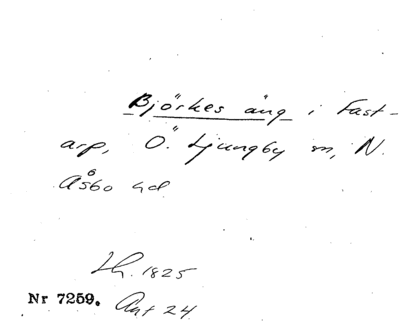 Björkes äng i Fast-
arp, Ö. Ljungby sn, N.
Åsbo hd
Lh. 1825
Nr 7259. Akt 24